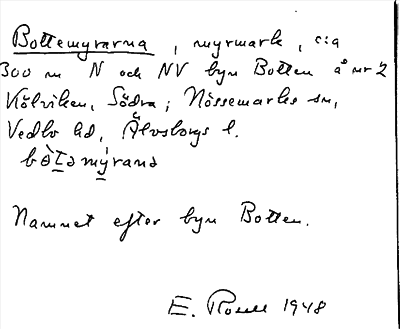 Bottemyrarna, myrmark, c:a
300 m N och NV byn Botten å nr 2
Kölviken, Södra; Nössemarks sn,
Vedbo hd, Älvsborgs l.
Namnet efter byn Botten.
E. 1948